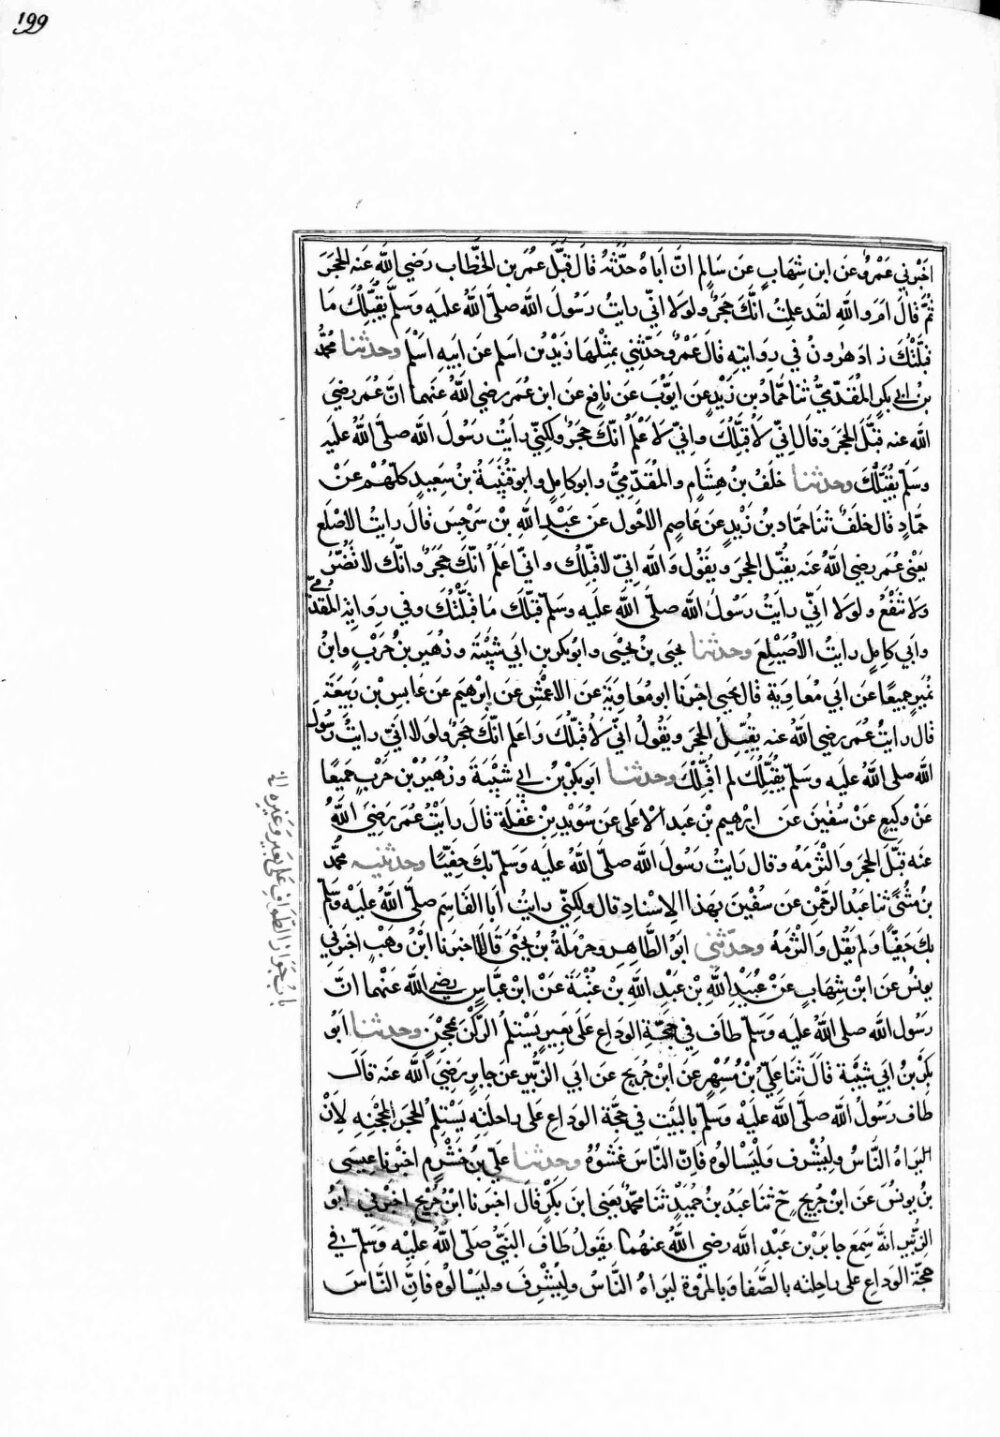 ١٩٩
اخبرني عمرو عن ابن شهاب عن سالم ان اباه حدثه قال قبل عمر بن الخطاب رضي الله عنه الحجر
ثم قال ام والله لقد علمت انك حجر ولولا اني رايت رسول الله صلى الله عليه وسلم يقبلك ما
قبلتك زاد هرون في روايته قال عمرو وحدثني بمثلها زيد بن اسلم عن ابيه اسلم وحدثنا محمد
بن ابي بكر المقدمي ثنا حماد بن زيد عن ايوب عن نافع عن ابن عمر رضي الله عنهما ان عمر رضي
الله عنه قبل الحجر وقال اني لاقبلك واني لاعلم انك حجر ولكني رايت رسول الله صلى الله عليه
وسلم يقبلك وحدثنا خلف بن هشام والمقدمي وابو كامل وابو قتيبة بن سعيد كلهم عن
حماد قال خلف ثنا حماد بن زيد عن عاصم الاحول عن عبد الله بن سرجس قال رايت الاصلع
يعني عمر رضي الله عنه يقبل الحجر ويقول والله اني لاقبلك واني اعلم انك حجر وانك لا تضر
ولا تنفع ولولا اني رايت رسول الله صلى الله عليه وسلم قبلك ما قبلتك وفي رواية المقدمي
وابي كامل رايت الاصيلع وحدثنا يحيى بن يحيى وابو بكر بن ابي شيبة وزهير بن حرب وابن
نمير جميعا عن ابي معاوية قال يحيى اخبرنا ابو معاوية عن الاعمش عن ابرهيم عن عابس بن ربيعة
قال رايت عمر رضي الله عنه يقبل الحجر ويقول اني لاقبلك واعلم انك حجر ولولا اني رايت رسول
الله صلى الله عليه وسلم يقبلك لم اقبلك وحدثنا ابو بكر بن ابي شيبة وزهير بن حرب جميعا
عن وكيع عن سفين عن ابرهيم بن عبد الاعلى عن سويد بن غفلة قال رايت عمر رضي الله
عنه قبل الحجر والتزمه وقال رايت رسول الله صلى الله عليه وسلم بك حفيا وحدثنيه محمد
بن مثنى ثنا عبد الرحمن عن سفين بهذا الاسناد قال ولكني رايت ابا القاسم صلى الله عليه وسلم
بك حفيا ولم يقل والتزمه وحدثني ابو الطاهر وحرملة بن يحيى قالا اخبرنا ابن وهب اخبرني
يونس عن ابن شهاب عن عبيد الله بن عبد الله بن عتبة عن ابن عباس رضي الله عنهما ان
رسول الله صلى الله عليه وسلم طاف في حجة الوداع على بعير يستلم الركن بمحجن وحدثنا ابو
بكر بن ابي شيبة قال ثنا علي بن مسهر عن ابن جريج عن ابي الزبير عن جابر رضي الله عنه قال
طاف رسول الله صلى الله عليه وسلم بالبيت في حجة الوداع على راحلته يستلم الحجر بمحجنه لان
يراه الناس وليشرف وليسالوه فان الناس غشوه وحدثنا علي بن خشرم اخبرنا عيسى
بن يونس عن ابن جريج ح ثنا عبد بن حميد ثنا محمد يعني ابن بكر قال اخبرنا ابن جريج اخبرني ابو
الزبير انه سمع جابر بن عبد الله رضي الله عنهما يقول طاف النبي صلى الله عليه وسلم في
حجة الوداع على راحلته بالصفا وبالمروة ليراه الناس وليشرف وليسالوه فان الناس
باب جواز الطواف على بعير وغيره الخ